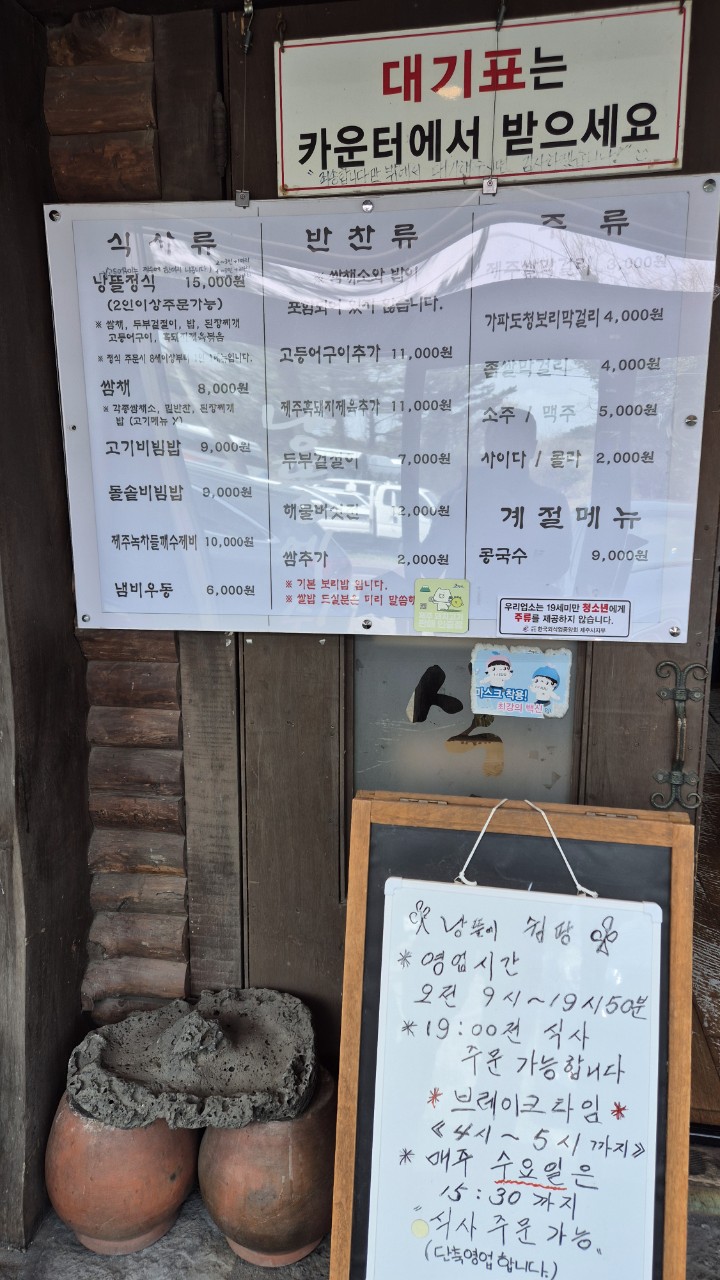 대기표는
카운터에서 받으세요
식 사 류
낭뜰정식 15,000원
(2인이상주문가능)
※ 쌈채, 두부겉절이, 밥, 된장찌개
고등어구이, 흑돼지제육볶음
※ 정식 주문시 8세이상부터 1인 1메뉴입니다.
쌈채 8,000원
※ 각종쌈채소, 밑반찬, 된장찌개
밥 (고기메뉴 X)
고기비빔밥 9,000원
돌솥비빔밥 9,000원
제주녹차들깨수제비 10,000원
냄비우동 6,000원
반 찬 류
※ 쌈채소와 밥이
포함되어 있지 않습니다.
고등어구이추가 11,000원
제주흑돼지제육추가 11,000원
두부겉절이 7,000원
해물버섯전 12,000원
쌈추가 2,000원
※ 기본 보리밥 입니다.
※ 쌀밥 드실분은 미리 말씀해
주 류
제주쌀막걸리 3,000원
가파도청보리막걸리 4,000원
좁쌀막걸리 4,000원
소주 / 맥주 5,000원
사이다 / 콜라 2,000원
계 절 메 뉴
콩국수 9,000원
우리업소는 19세미만 청소년에게
주류를 제공하지 않습니다.
한국외식업중앙회 제주시지부
마스크 착용!
최강의 백신
낭뜰에 쉼팡
* 영업시간
오전 9시~19시50분
* 19:00전 식사
주문 가능합니다
* 브레이크타임 *
《4시~5시까지》
* 매주 수요일은
15:30 까지
"식사 주문 가능"
(단축영업합니다.)